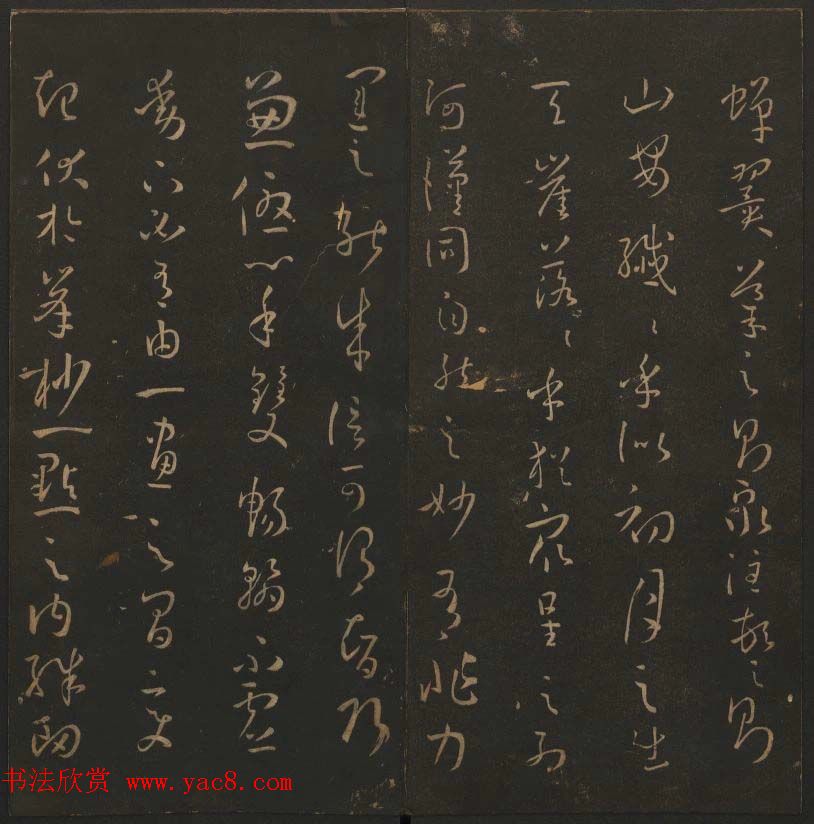 蟬翼導之則泉注頓之則
山安纖〻乎似初月之出
天崖落〻乎猶衆星之列
河漢同自然之妙有非力
運之能成信可謂智巧
兼優心手雙暢翰不虛
動下必有由一畫之間變
起伏於峯杪一點之內殊衄
书法欣赏 www.yac8.com